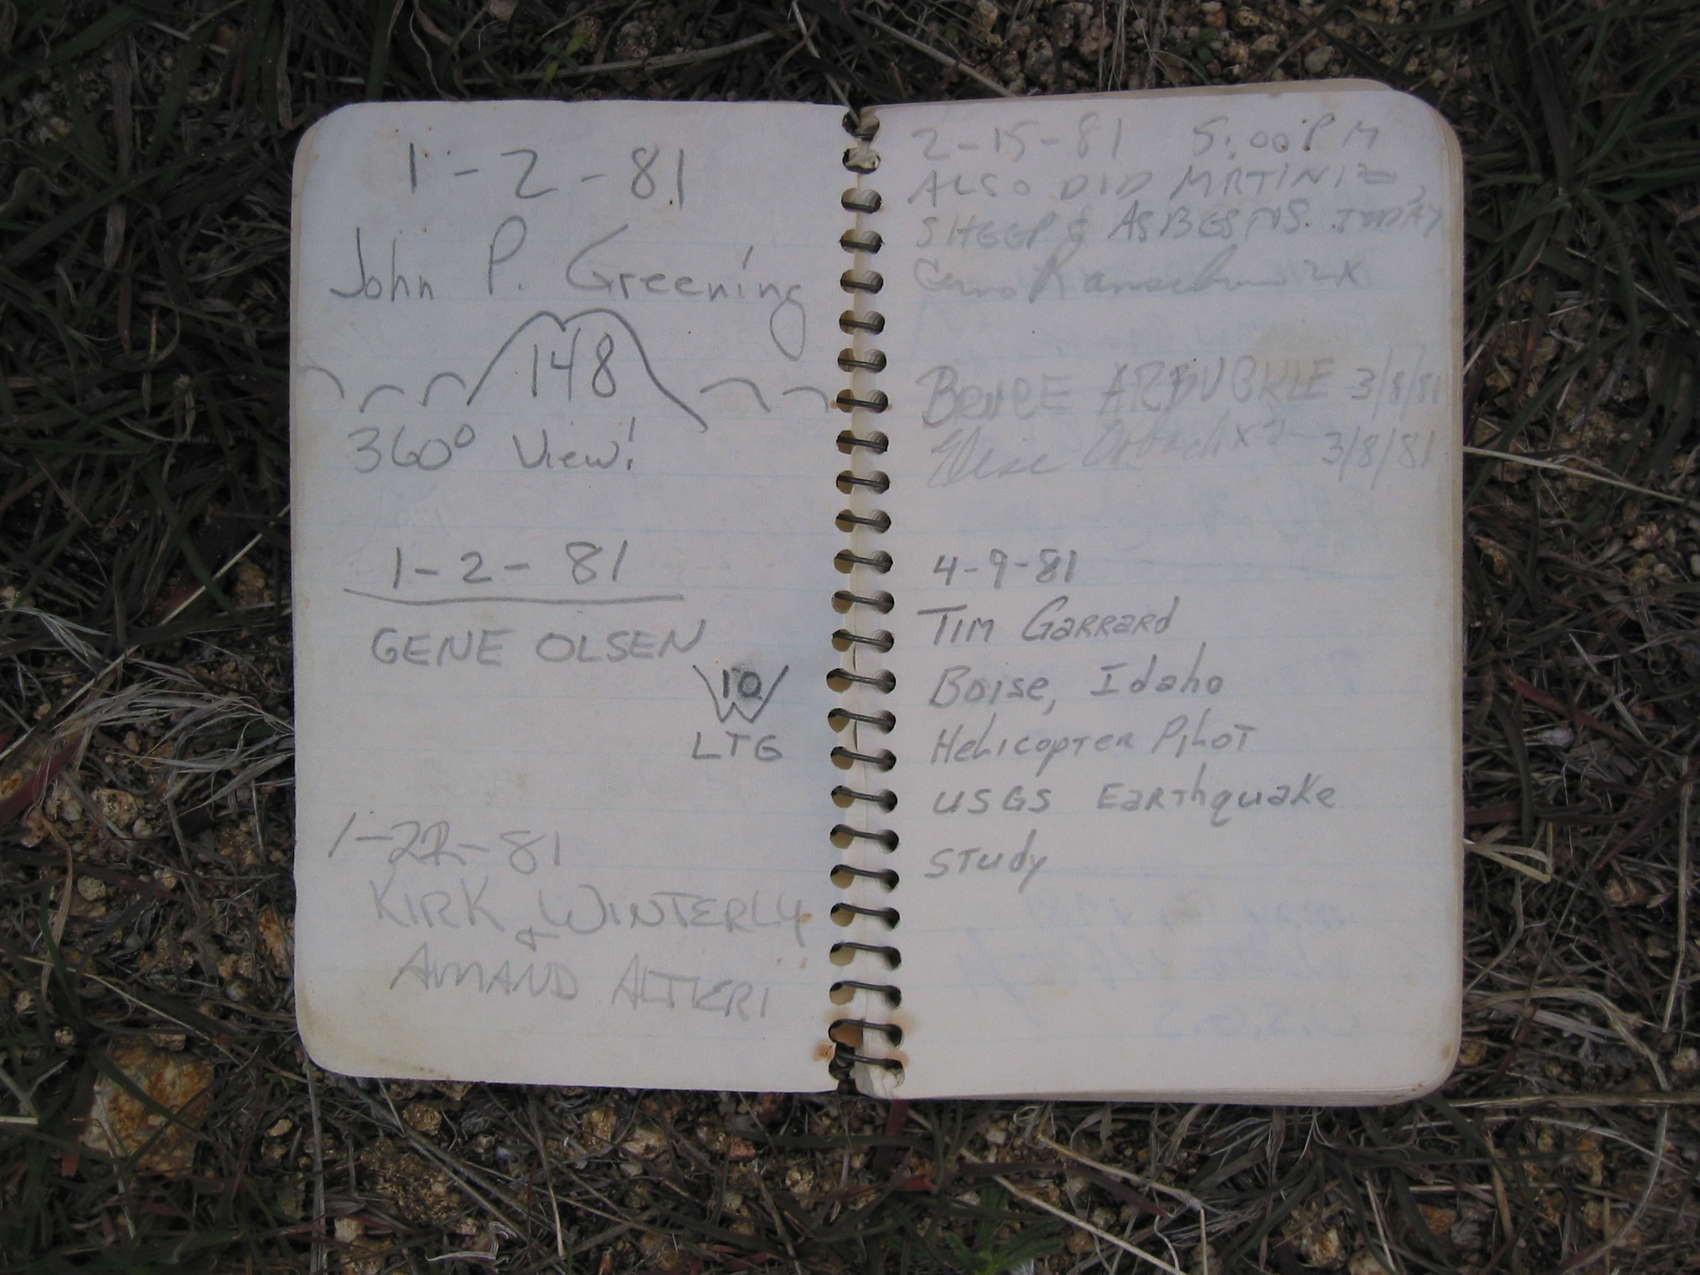 1-2-81
John P. Greening
148
360° View!
1-2-81
GENE OLSEN
10
LTG
1-22-81
KIRK WINTERLY
&
ARMAND ALTIERI
2-15-81 5:00 PM
ALSO DID MRTINIZ,
SHEEP & ASBESTOS. TODAY
2X
BRUCE ARBUCKLE 3/8/81
x2 3/8/81
4-9-81
Tim Garrard
Boise, Idaho
Helicopter Pilot
USGS Earthquake
Study